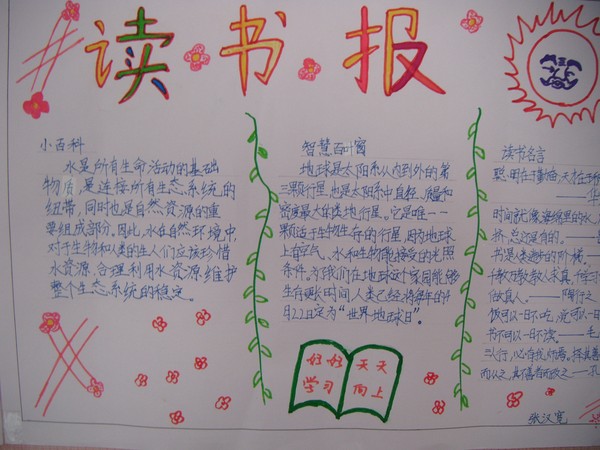 读书报
小百科
水是所有生命活动的基础
物质,是连接所有生态系统的
纽带,同时也是自然资源的重
要组成部分,因此,水在自然环境中,
对于生物和人类的生人们应该珍惜
水资源,合理利用水资源维护
整个生态系统的稳定。
智慧百叶窗
地球是太阳系从内到外的第
三颗行星,也是太阳系中直径、质量和
密度最大的类地行星。它是唯一一
颗适于生物生存的行星,因为地球
上有空气、水和生物能接受的光照
条件,为我们在地球这个家园能够
生存更长时间,人类已经将每年的4
月22日定为“世界地球日”。
好好 天天
学习 向上
读书名言
聪明在于勤奋,天才在于积
——华
时间就像海绵里的水,
挤,总还是有的。
书是人类进步的阶梯。——
千教万教教人求真,千学
做真人。——陶行之
饭可以一日不吃,觉可以一日
书不可以一日不读。——毛
三人行,必有我师焉。择其善
而从之,其不善者而改之——孔
张汉宽